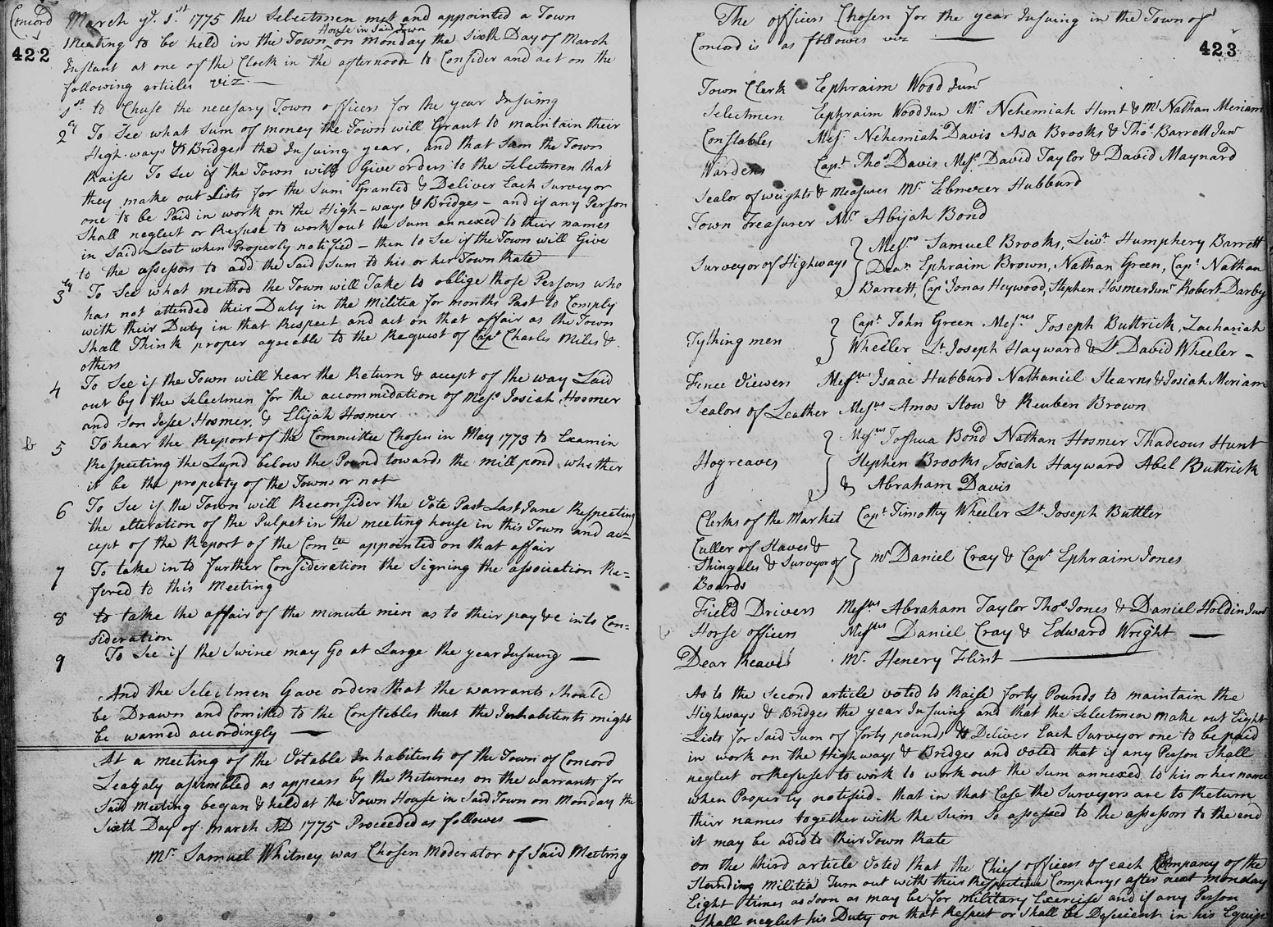 Concord
422
March ye. 1st. 1775 the Selectsmen met and appointed a Town
Meeting to be held in the Town House in Said Town on monday the Sixth Day of March
Instant at one of the Clock in the afternoon to Consider and act on the
following articles viz —
1st to Chuse the necesary Town officers for the year Insuing
2ly To See what Sum of money the Town will Grant to maintain their
High-ways & Bridges the Insuing year, and that Sum the Town
Raise To See if the Town will Give orders to the Selectmen that
they make out Lists for the Sum Granted & Deliver Each Surveyor
one to be Paid in work on the High-ways & Bridges - and if any Person
Shall neglect or Refuse to work out the Sum annexed to their names
in Said List when Properly notifed - then to See if the Town will Give
to the assesors to add the Said Sum to his or her Town Rate
3ly To See what method the Town will Take to oblige those Persons who
has not attended their Duty in the Militia for months Past to Comply
with their Duty in that Respect and act on that affair as the Town
Shall Think proper agreable to the Request of Capt Charles Miles &
others
4 To See if the Town will hear the Return & accept of the way Laid
out by the Selectmen for the accommidation of Mess. Josiah Hosmer
and Son Jesse Hosmer, & Elijah Hosmer
5 To hear the Report of the Committee Chosen in May 1773 to Examin
Respecting the Land below the Pound towards the mill pond whether
it be the property of the Towns or not
6 To See if the Town will Reconsider the Vote Past Last June Respecting
the alteration of the Pulpet in the meeting house in this Town and ac-
cept of the Report of the Comtee appointed on that affair
7 To take into further Consideration the Signing the association Re=
fered to this Meeting
8 to take the affair of the minute men as to their pay &c into Con=
sideration
9 To See if the Swine may Go at Large the year Insuing —
And the Selectmen Gave orders that the warrants Should
be Drawn and Comited to the Constebles that the Inhabetents might
be warned accordingly —
At a meeting of the Votable Inhabitents of the Town of Concord
Leagaly assembled as appears by the Returnes on the warrants for
Said Meeting began & held at the Town House in Said Town on Monday the
Sixth Day of march AD 1775 Proceeded as follows —
Mr. Samuel Whitney was Chosen Moderator of Said Meeting
The officers Chosen for the year Insuing in the Town of
Concord is as follows viz —
423
Town Clerk Ephraim Wood Junr
Selectmen Ephraim Wood Jur Mr. Nehemiah Hunt & Mr Nathan Meriam
Constables Mess. Nehemiah Davis Asa Brooks & Thos. Barrett Junr
Wardens Capt. Thos Davis Mess. David Taylor & David Maynard
Sealor of weights & measures Mr. Ebenezer Hubburd
Town Treasurer Mr. Abijah Bond
Surveyor of Highways Messrs Samuel Brooks, Lieut. Humphery Barrett
Dean. Ephraim Brown, Nathan Green, Capt. Nathan
Barrett, Capt Jonas Heywood, Stephen Hosmer Junr Robert Darby
Tything men Capt. John Green Messrs Joseph Buttrick, Zachariah
Wheeler Lt. Joseph Hayward & Lt. David Wheeler -
Fence Viewers Messrs Isaac Hubburd Nathaniel Stearns & Josiah Meriam
Sealors of Leather Messrs Amos How & Reuben Brown
Hogreaves Messrs Joshua Bond Nathan Hosmer Thadeous Hunt
Stephen Brooks Josiah Hayward Abel Buttrick
& Abraham Davis
Clerks of the Marked Capt. Timothy Wheeler Lt Joseph Buttler
Culler of Staves &
Shingles & Surveyor of mr Daniel Cray & Capt Ephraim Jones
Boards
Field Drivers Messrs Abraham Taylor Thos. Jones & Daniel Holdin Junr
Horse officers Messrs Daniel Cray & Edward Wright —
Dear Reaves mr. Henery Flint —
As to the Second article voted to Raise forty Pounds to maintain the
Highways & Bridges the year Insuing and that the Selectmen make out Eight
Lists for Said Sum of forty pound, & Deliver Each Surveyor one to be paid
in work on the Highways & Bridges and voted that if any Person Shall
neglect or Refuse to work to work out the Sum annexed to his or her name
when Properly notified - that in that Case the Surveyors are to Return
their names together with the Sum So assessed to the assessors to the end
it may be aded to their Town Rate
on the third article Voted that the Chief officers of each Company of the
Standing Militia Turn out with their Respective Companys after next monday
Eight times as soon as may be for military Exercise and if any Person
Shall neglect his Duty on that Respect or Shall be Deficient in his Equip